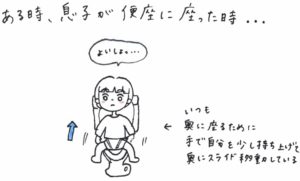 ある時、息子が便座に座った時...
よいしょっ...
いつも
← 奥に座るために
手で自分を少し持ち上げて
奥にスライド移動している